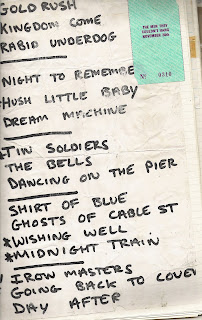 GOLD RUSH
KINGDOM COME
RABID UNDERDOG
NIGHT TO REMEMBE
HUSH LITTLE BABY
DREAM MACHINE
TIN SOLDIERS
THE BELLS
DANCING ON THE PIER
SHIRT OF BLUE
GHOSTS OF CABLE ST
*WISHING WELL
*MIDNIGHT TRAIN
IRON MASTERS
GOING BACK TO COVE
DAY AFTER
THE MEN THEY
COULDN'T HANG
NOVEMBER
Nº